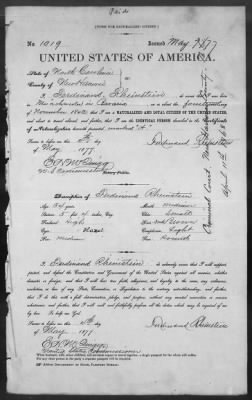 [FORM FOR NATURALIZED CITIZEN.]
No. 1019 Issued May 9/77
UNITED STATES OF AMERICA.
State of North Carolina
County of New Hanover
I, Ferdinand Rheinstein, do swear that I was
born in Bavaria on or about the fourteenth
November 1842; that I am a NATURALIZED AND LOYAL CITIZEN OF THE UNITED STATES,
and about to travel abroad; and further, that I am the IDENTICAL PERSON described in the Certificate
of Naturalization herewith presented marked "A".
Sworn to before me, this
of May 1877
Ferdinand Rheinstein
Description of Ferdinand Rheinstein
Age: 34 years
Stature: 5 feet
Forehead: High
Eyes: Hazel
Nose: Medium
Mouth: Medium
Chin: Small
Hair: Brown
Complexion: Light
Face:
I, Ferdinand Rheinstein, do solemnly swear that I will support,
protect, and defend the Constitution and Government of the United States against all enemies, whether
domestic or foreign; and that I will bear true faith, allegiance, and loyalty to the same, any ordinance,
resolution or law of any State, Convention, or Legislature to the contrary notwithstanding; and further,
that I do this with a full determination, pledge, and purpose, without any mental reservation or evasion
whatsoever; and further, that I will well and faithfully perform all the duties which may be required of me
by law. So help me God.
Sworn to before me, this
of May 1877
Ferdinand Rheinstein
United States Commissioner